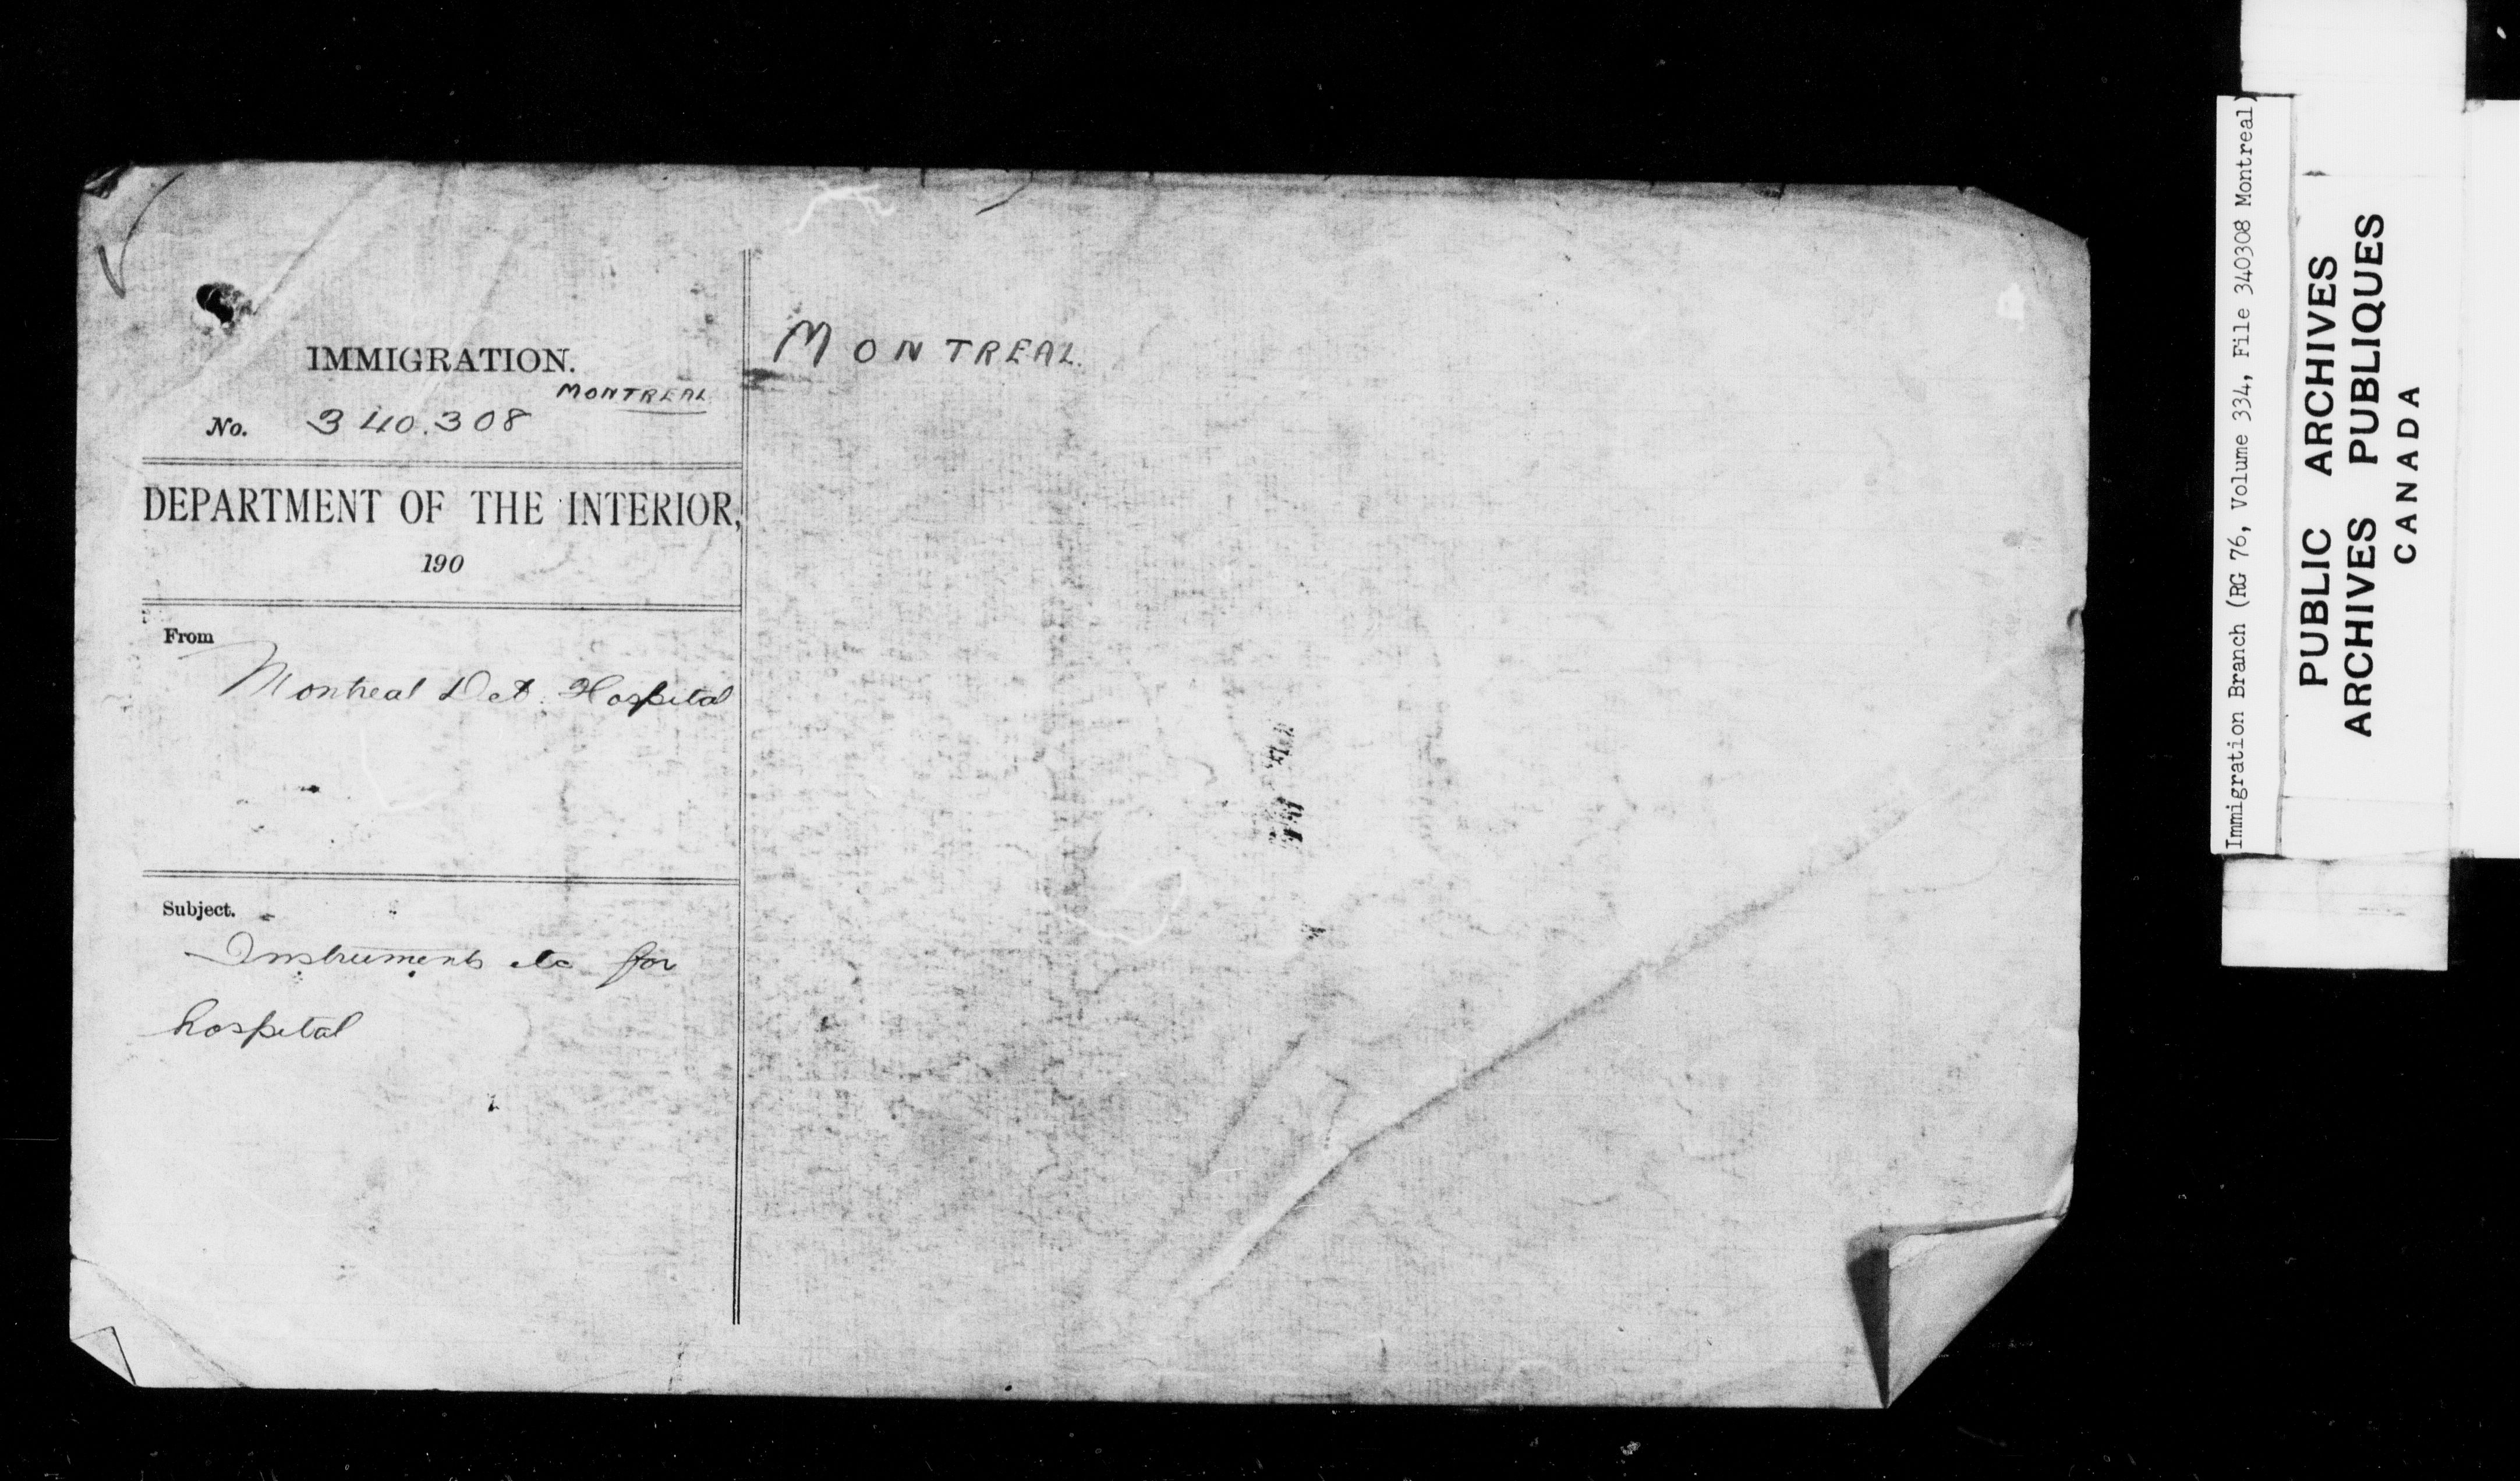 IMMIGRATION.
MONTREAL
No. 340.308
DEPARTMENT OF THE INTERIOR,
190
From
Montreal Det. Hospital
Subject.
Instruments etc for
hospital
MONTREAL.
Immigration Branch (RG 76, Volume 334, File 340308 Montreal)
PUBLIC ARCHIVES
ARCHIVES PUBLIQUES
CANADA